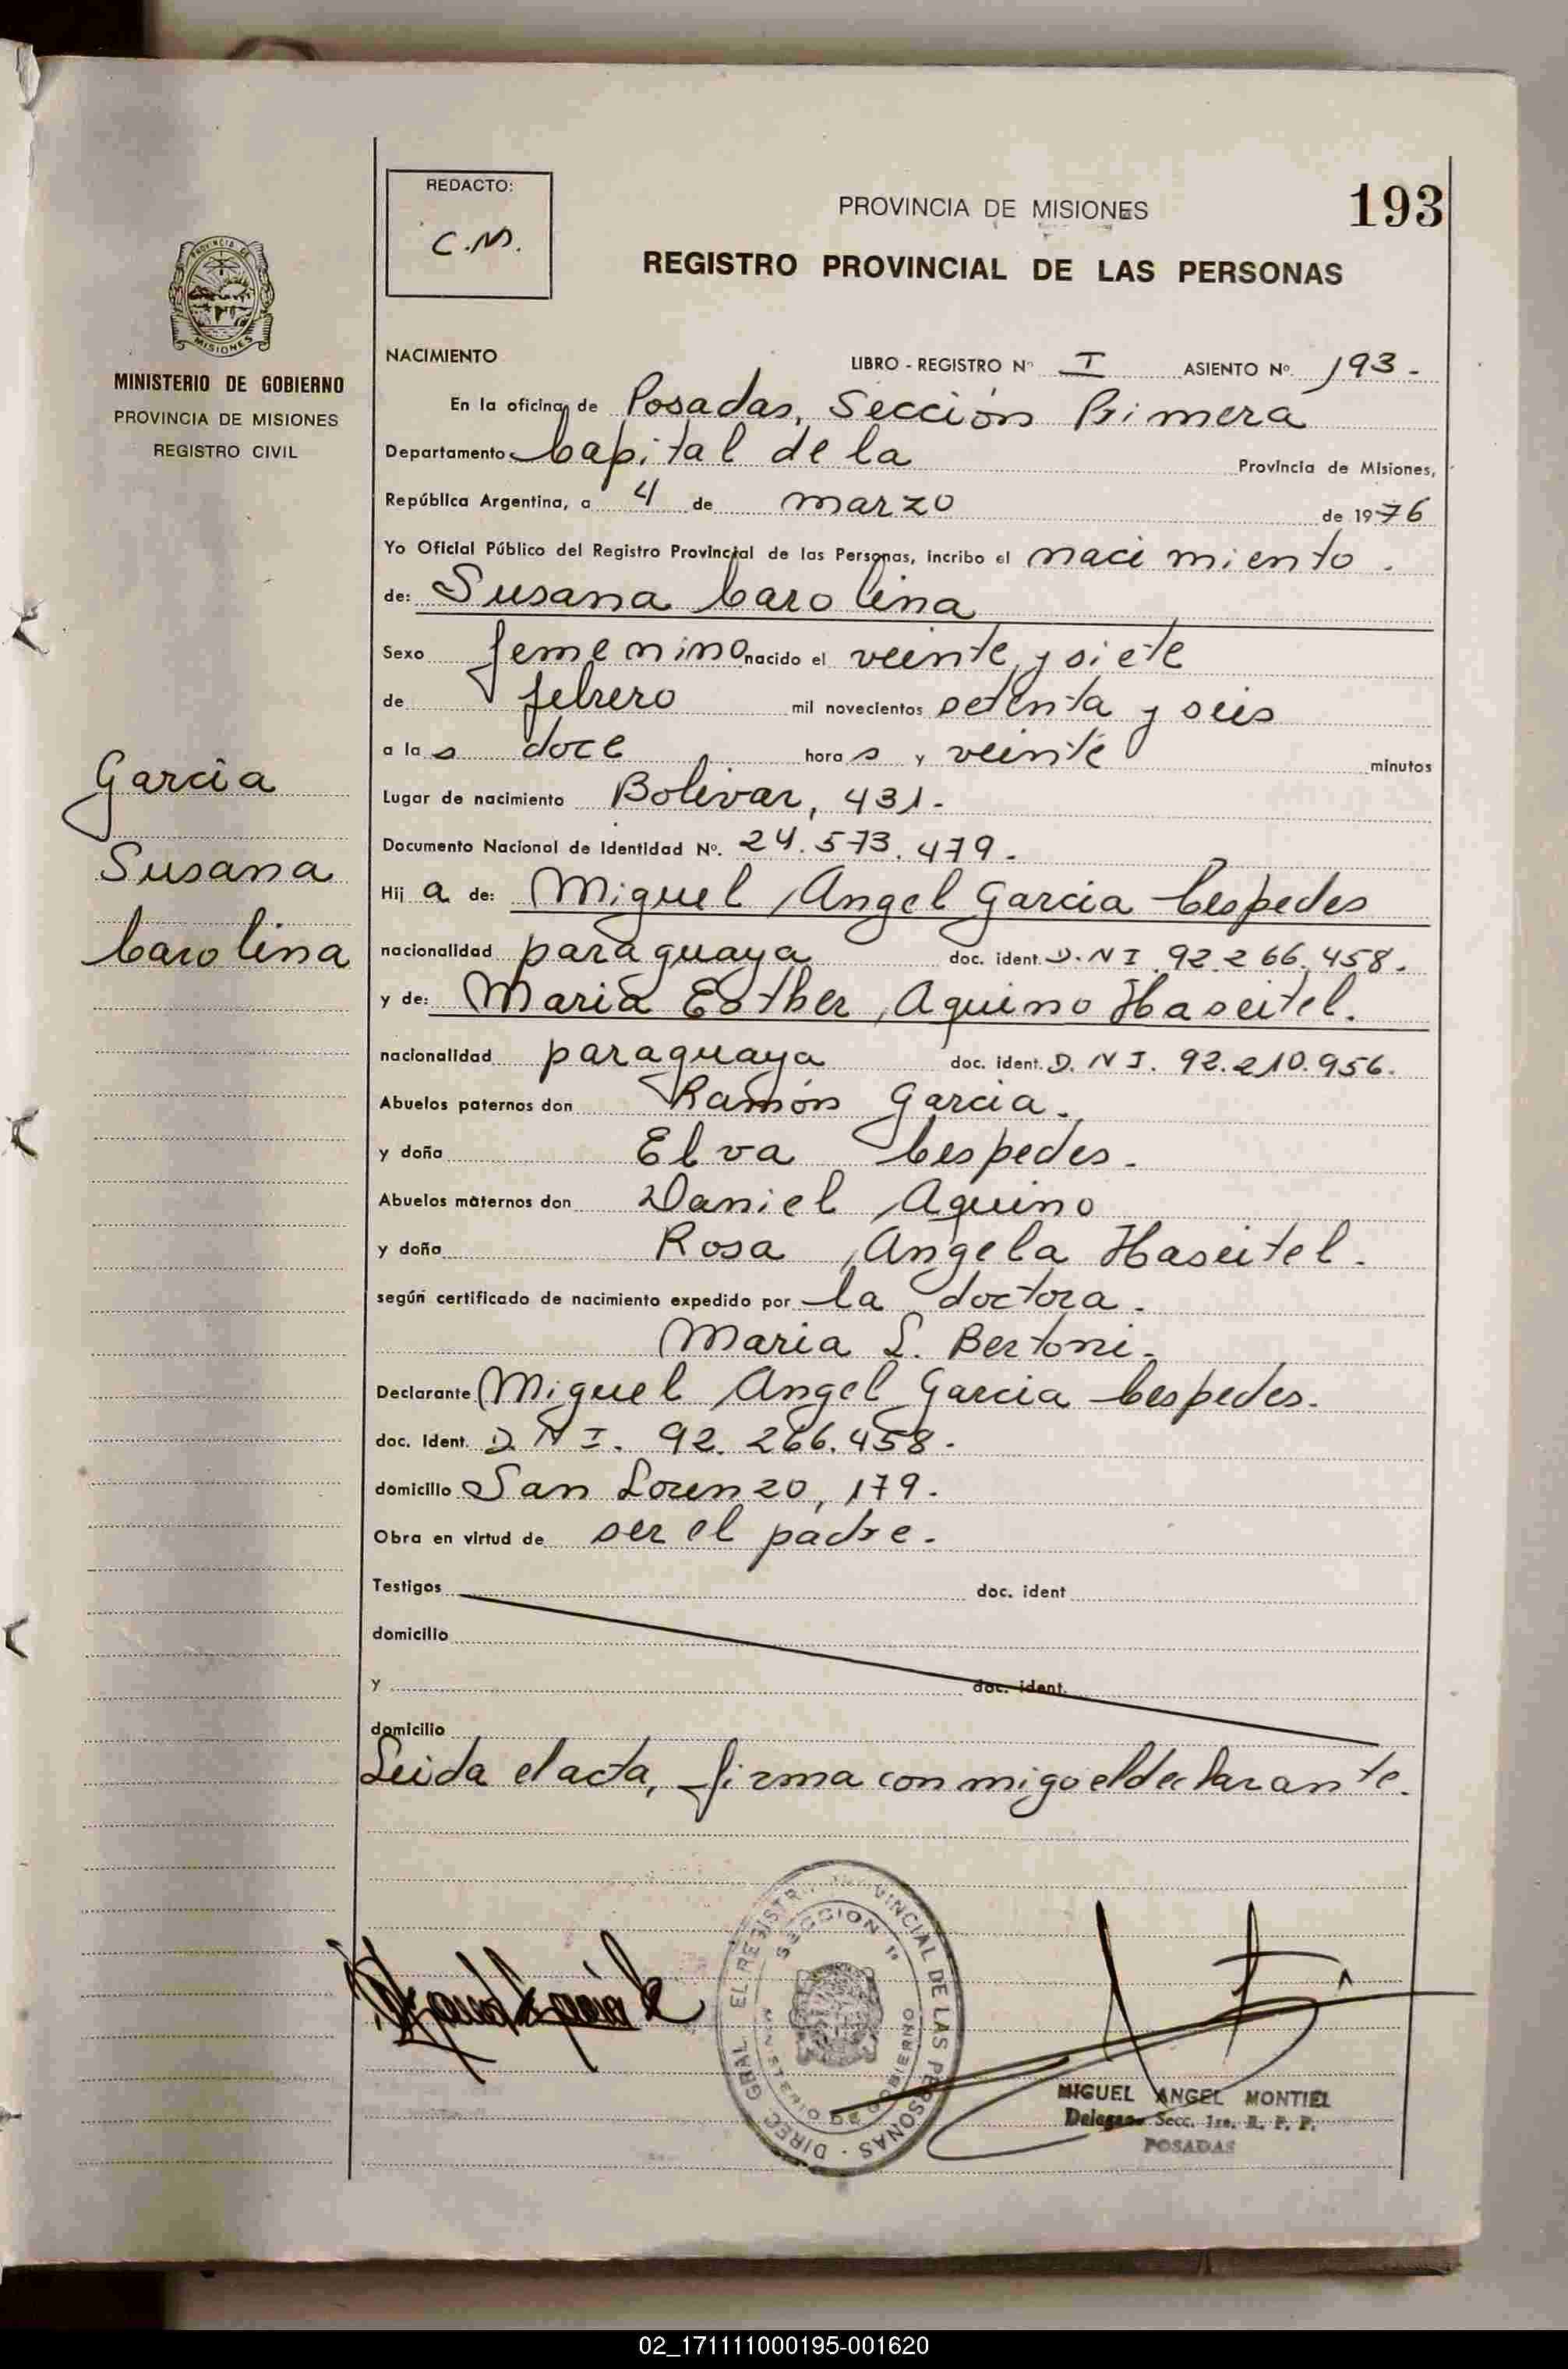 193
REDACTO:
C.M.
PROVINCIA DE MISIONES
REGISTRO PROVINCIAL DE LAS PERSONAS
PROVINCIA DE
MISIONES
MINISTERIO DE GOBIERNO
PROVINCIA DE MISIONES
REGISTRO CIVIL
Garcia
Susana
Carolina
NACIMIENTO LIBRO - REGISTRO Nº I ASIENTO Nº. 193.-
En la oficina de Posadas, Sección Primera
Departamento Capital de la Provincia de Misiones,
República Argentina, a 4 de marzo de 1976
Yo Oficial Público del Registro Provincial de las Personas, incribo el nacimiento.
de: Susana Carolina
Sexo femenino nacido el veinte y siete
de febrero mil novecientos setenta y seis
a las doce horas y veinte minutos
Lugar de nacimiento Bolivar, 431.-
Documento Nacional de Identidad Nº. 24.573.479.-
Hija de: Miguel Angel Garcia Cespedes
nacionalidad paraguaya doc. ident. D.N I. 92.266.458.
y de: Maria Esther Aquino Haseitel.
nacionalidad paraguaya doc. ident. D. N I. 92.210.956.
Abuelos paternos don Ramón Garcia.
y doña Elva Cespedes.
Abuelos maternos don Daniel Aquino
y doña Rosa Angela Haseitel.
según certificado de nacimiento expedido por la doctora.
Maria S. Bertoni.
Declarante Miguel Angel Garcia Cespedes.
doc. ident. D. N I. 92.266.458.
domicilio San Lorenzo, 179.
Obra en virtud de ser el padre.
Testigos doc. ident
domicilio
y doc. ident.
domicilio
Leida el acta, firma conmigo el declarante.
DIREC. GRAL. EL REGISTRO PROVINCIAL DE LAS PERSONAS
SECCION 1ª
MINISTERIO DE GOBIERNO
MIGUEL ANGEL MONTIEL
Delegado Secc. 1ra. R. P. P.
POSADAS
02_171111000195-001620